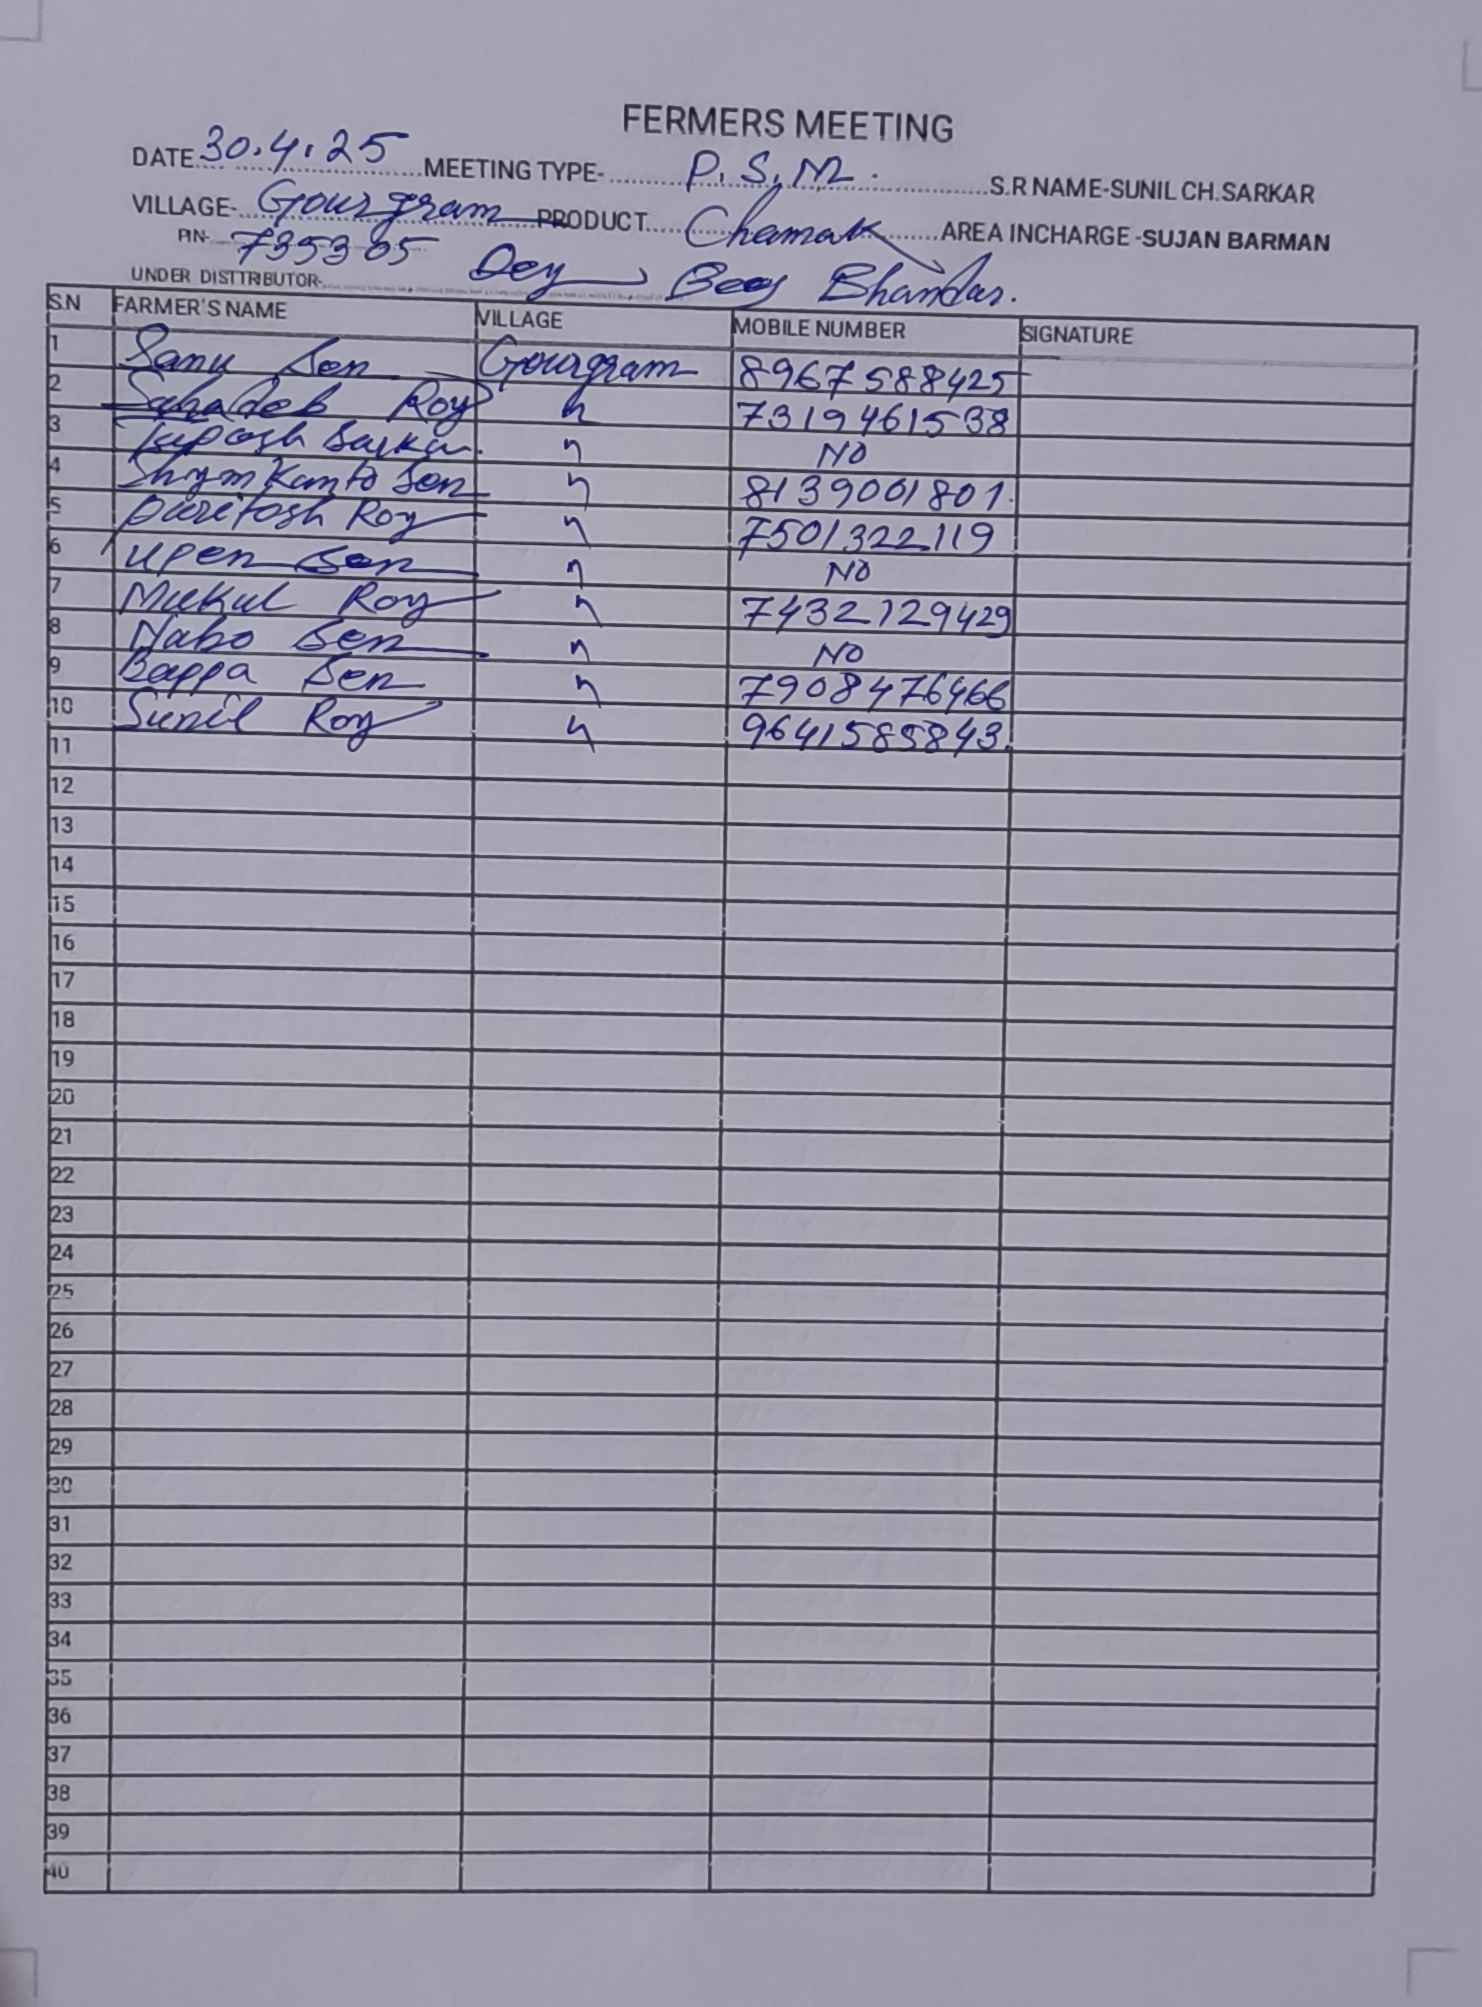 FERMERS MEETING
DATE 30.4.25 MEETING TYPE- P.S.M. S.R NAME-SUNIL CH.SARKAR
VILLAGE- Gourgram PRODUCT Chamak AREA INCHARGE -SUJAN BARMAN
PIN- 735305
UNDER DISTTRIBUTOR- Dey Beej Bhandar.
S.N FARMER'S NAME VILLAGE MOBILE NUMBER SIGNATURE
1 Sanu Sen Gourgram 8967588425
2 Sahadeb Roy " 7319461538
3 Sarkar. " NO
4 Shymkanto Sen " 8139001801.
5 Paritosh Roy " 7501322119
6 Upen Sen " NO
7 Mukul Roy " 7432129429
8 Nabo Sen " NO
9 Bappa Sen " 7908476466
10 Sunil Roy " 9641585843.
11
12
13
14
15
16
17
18
19
20
21
22
23
24
25
26
27
28
29
30
31
32
33
34
35
36
37
38
39
40